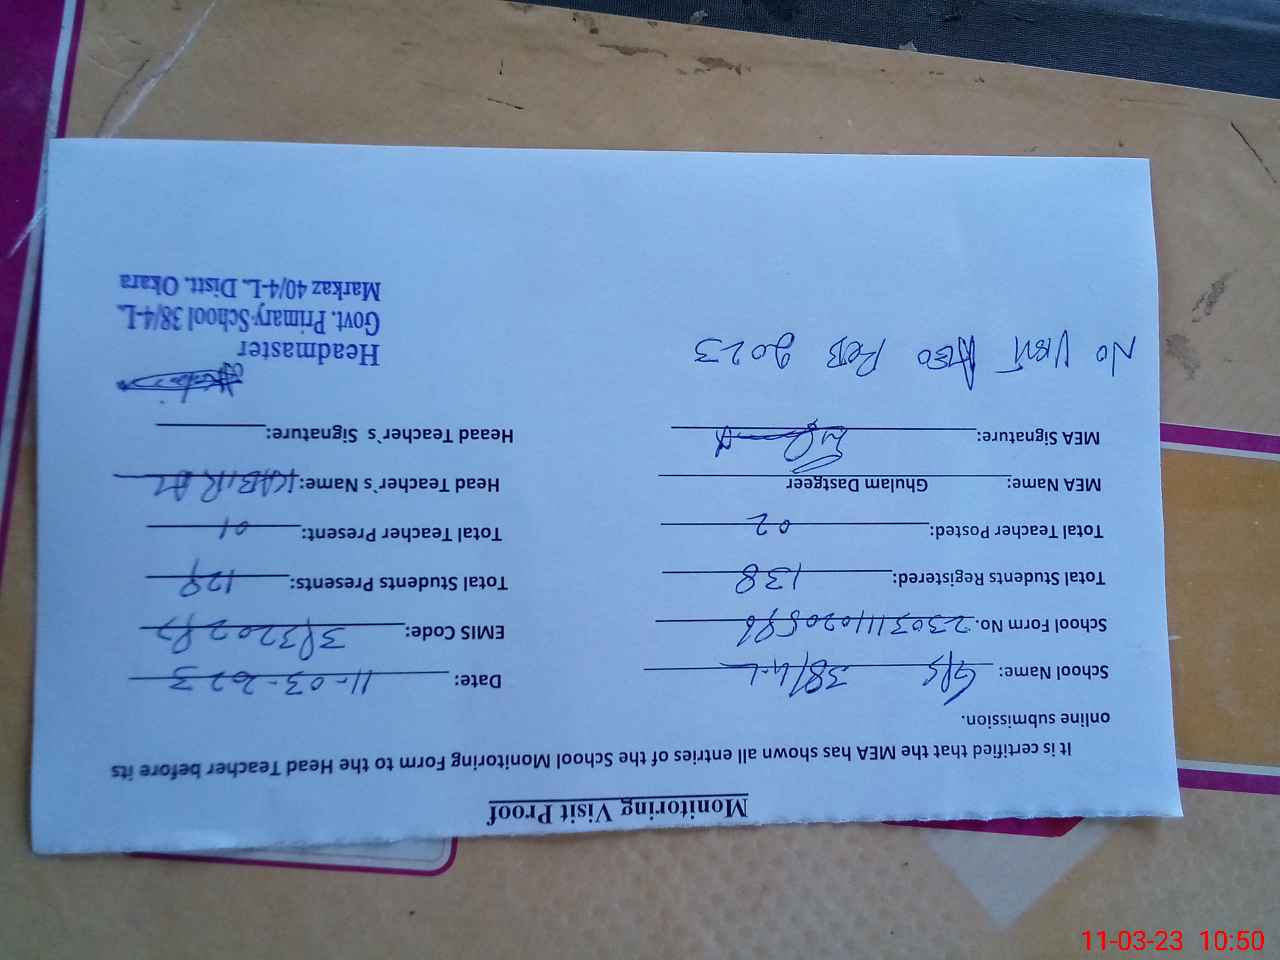 Monitoring Visit Proof
It is certified that the MEA has shown all entries of the School Monitoring Form to the Head Teacher before its
online submission.
School Name: GPS 38/4-L Date: 11-03-2023
School Form No. EMIS Code:
Total Students Registered: 138 Total Students Presents: 129
Total Teacher Posted: 02 Total Teacher Present: 01
MEA Name: Ghulam Dastgeer Head Teacher`s Name: KABIR
MEA Signature: Heaad Teacher`s Signature:
No Visit AEO FeB 2023
Headmaster
Govt. Primary School 38/4-L
Markaz 40/4-L. Distt. Okara
11-03-23 10:50